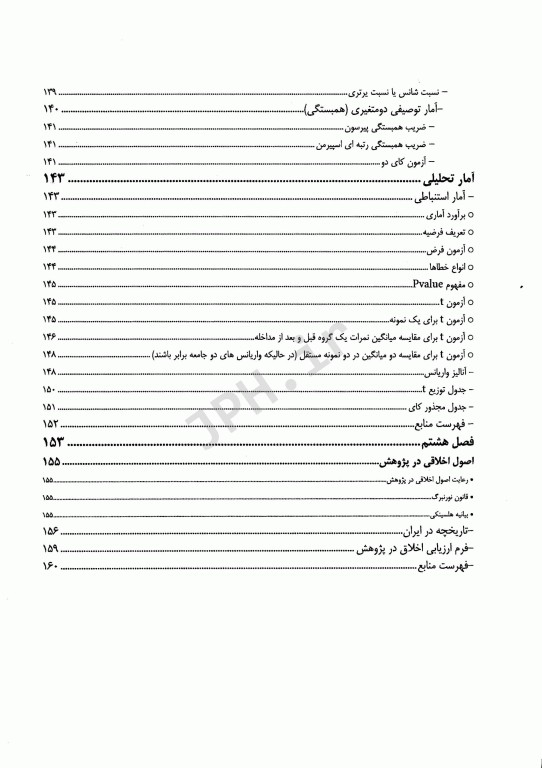 – نسبت شانس یا نسبت برتری ........ ۱۳۹
–آمار توصیفی دومتغیری (همبستگی) ........ ۱۴۰
– ضریب همبستگی پیرسون ........ ۱۴۱
– ضریب همبستگی رتبه ای اسپیرمن ........ ۱۴۱
– آزمون کای دو ........ ۱۴۱
آمار تحلیلی ........ ۱۴۳
– آمار استنباطی ........ ۱۴۳
○ برآورد آماری ........ ۱۴۳
○ تعریف فرضیه ........ ۱۴۳
○ آزمون فرض ........ ۱۴۴
○ انواع خطاها ........ ۱۴۴
○ مفهوم Pvalue ........ ۱۴۵
○ آزمون t ........ ۱۴۵
○ آزمون t برای یک نمونه ........ ۱۴۵
○ آزمون t برای مقایسه میانگین نمرات یک گروه قبل و بعد از مداخله ........ ۱۴۶
○ آزمون t برای مقایسه دو میانگین در دو نمونه مستقل (در حالیکه واریانس های دو جامعه برابر باشند) ........ ۱۴۸
– آنالیز واریانس ........ ۱۴۸
– جدول توزیع t ........ ۱۵۰
– جدول مجذور کای ........ ۱۵۱
– فهرست منابع ........ ۱۵۲
فصل هشتم ........ ۱۵۳
اصول اخلاقی در پژوهش ........ ۱۵۵
• رعایت اصول اخلاقی در پژوهش ........ ۱۵۵
• قانون نورنبرگ ........ ۱۵۵
• بیانیه هلسینکی ........ ۱۵۵
–تاریخچه در ایران ........ ۱۵۶
–فرم ارزیابی اخلاق در پژوهش ........ ۱۵۹
–فهرست منابع ........ ۱۶۰
JPH.ir